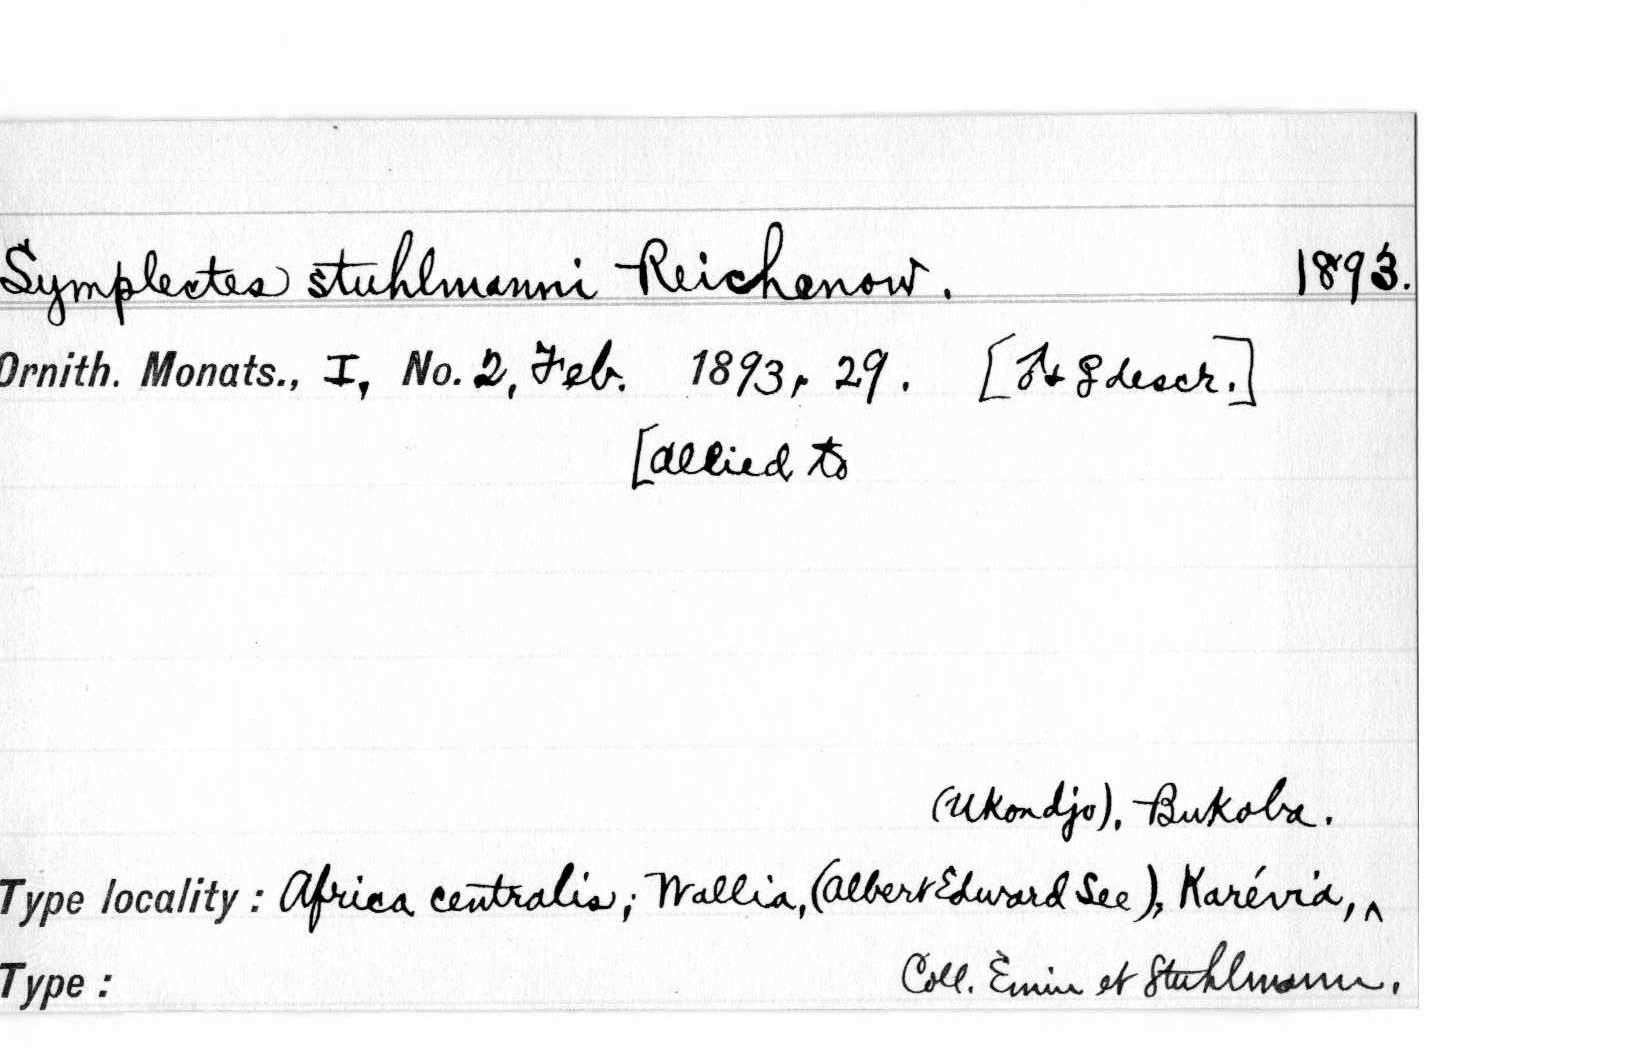 Symplectes stuhlmanni Reichenow. 1893.
Ornith. Monats., I, No. 2, Feb. 1893, 29. [♂ + ♀ descr.]
[allied to
(Ukondjo), Bukoba.
Type locality: Africa centralis; Wallia, (Albert Edward See), Karévia, ^
Type: Coll. Emin et Stuhlmann.